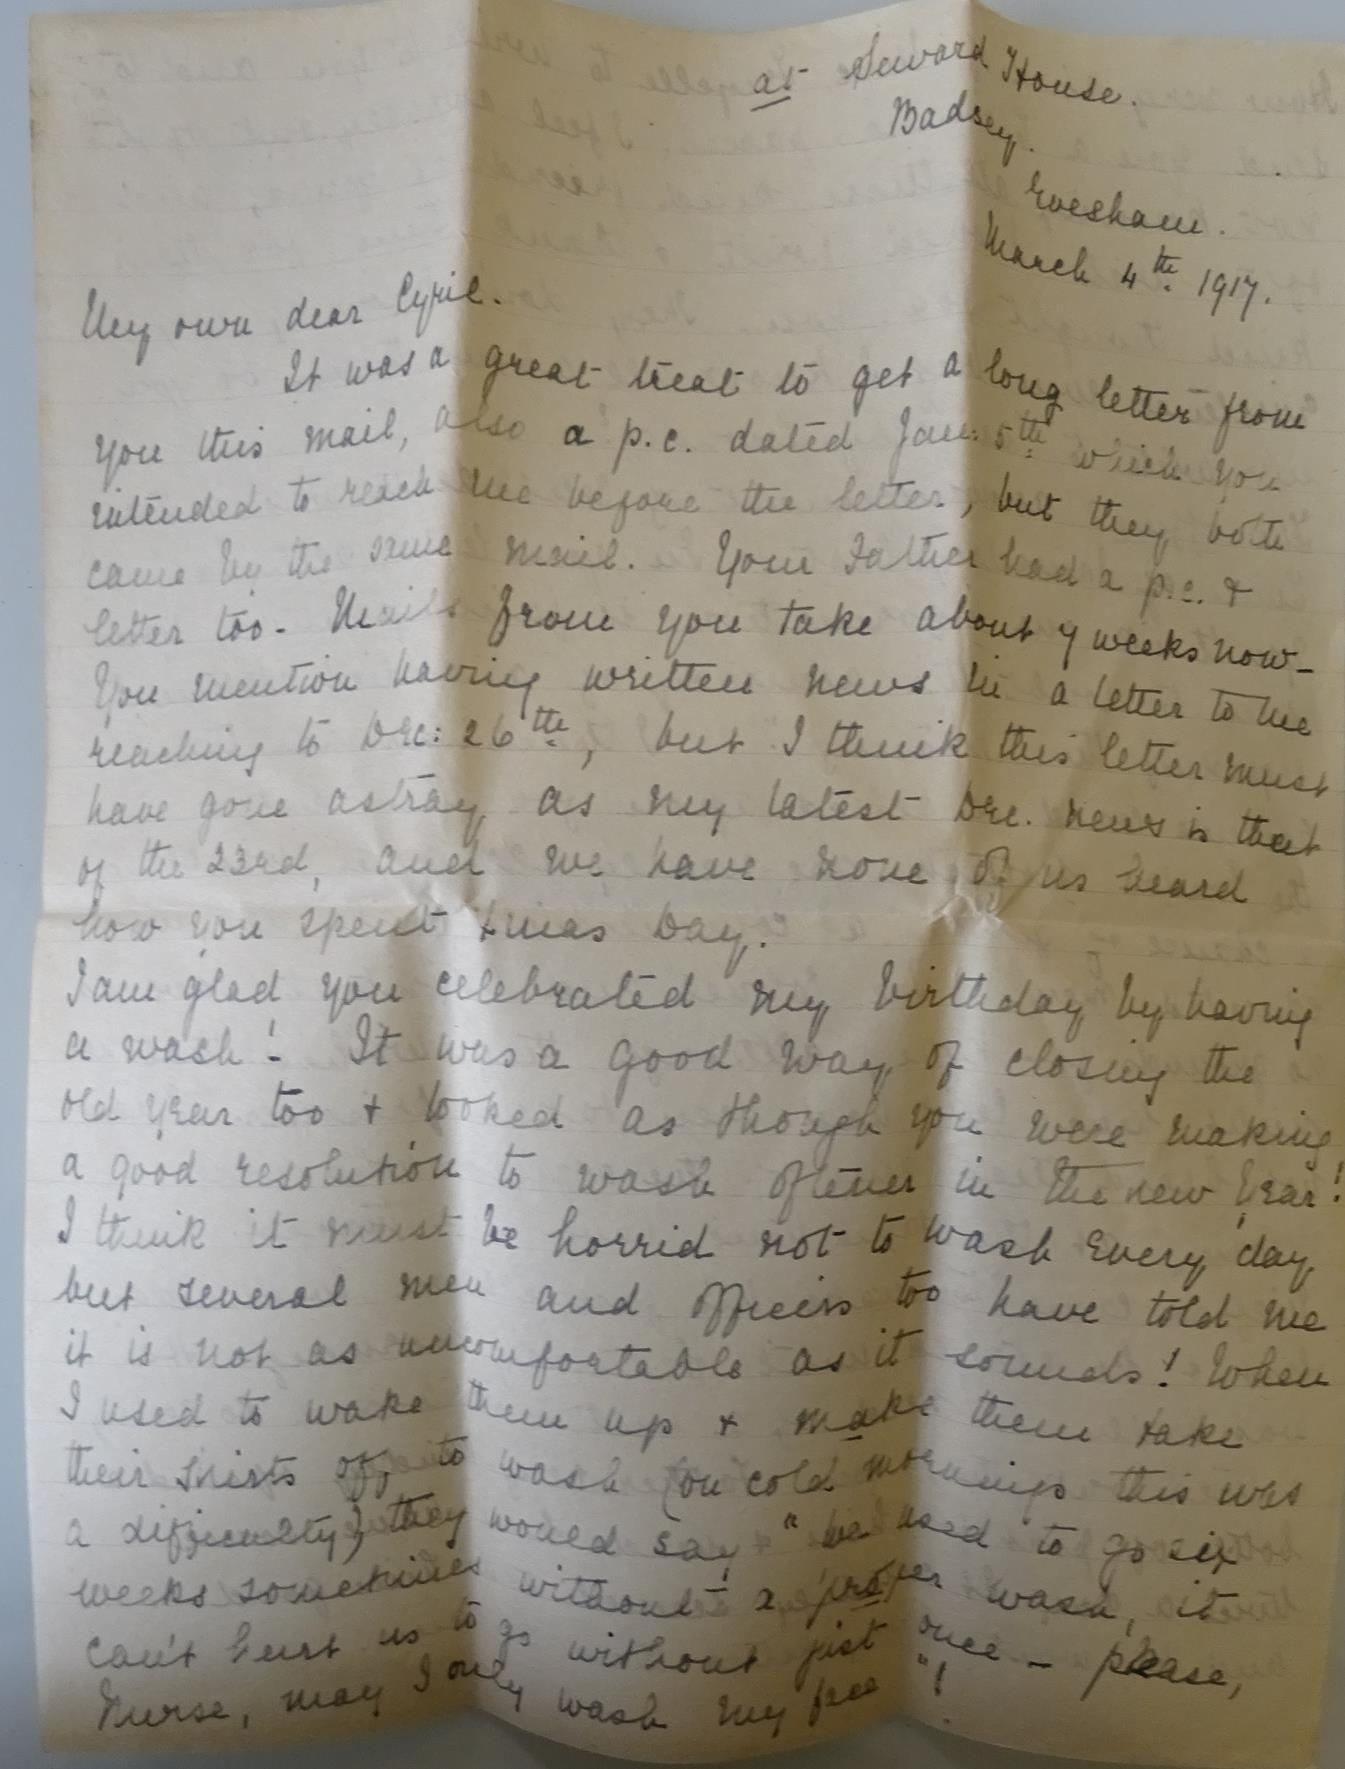 at Seward House.
Badsey.
Evesham.
March 4th. 1917.
My own dear Cyril.
It was a great treat to get a long letter from
you this mail, also a p.c. dated Jan: 5th which you
intended to reach me before the letter, but they both
came by the same mail. Your Father had a p.c. &
letter too. Mails from you take about 7 weeks now -
You mention having written news in a letter to me
reaching to Dec: 26th, but I think this letter must
have gone astray as my latest Dec. news is that
of the 23rd, and we have none of us heard
how you spent Xmas Day.
I am glad you celebrated my birthday by having
a wash! It was a good way of closing the
old year too & looked as though you were making
a good resolution to wash oftener in the new Year!
I think it must be horrid not to wash every day
but several men and officers too have told me
it is not as uncomfortable as it sounds! When
I used to wake them up & make them take
their shirts off to wash (on cold mornings this was
a difficulty) they would say "We used to go six
weeks sometimes without a proper wash, it
can't hurt us to go without just once - please,
Nurse, may I only wash my face"!